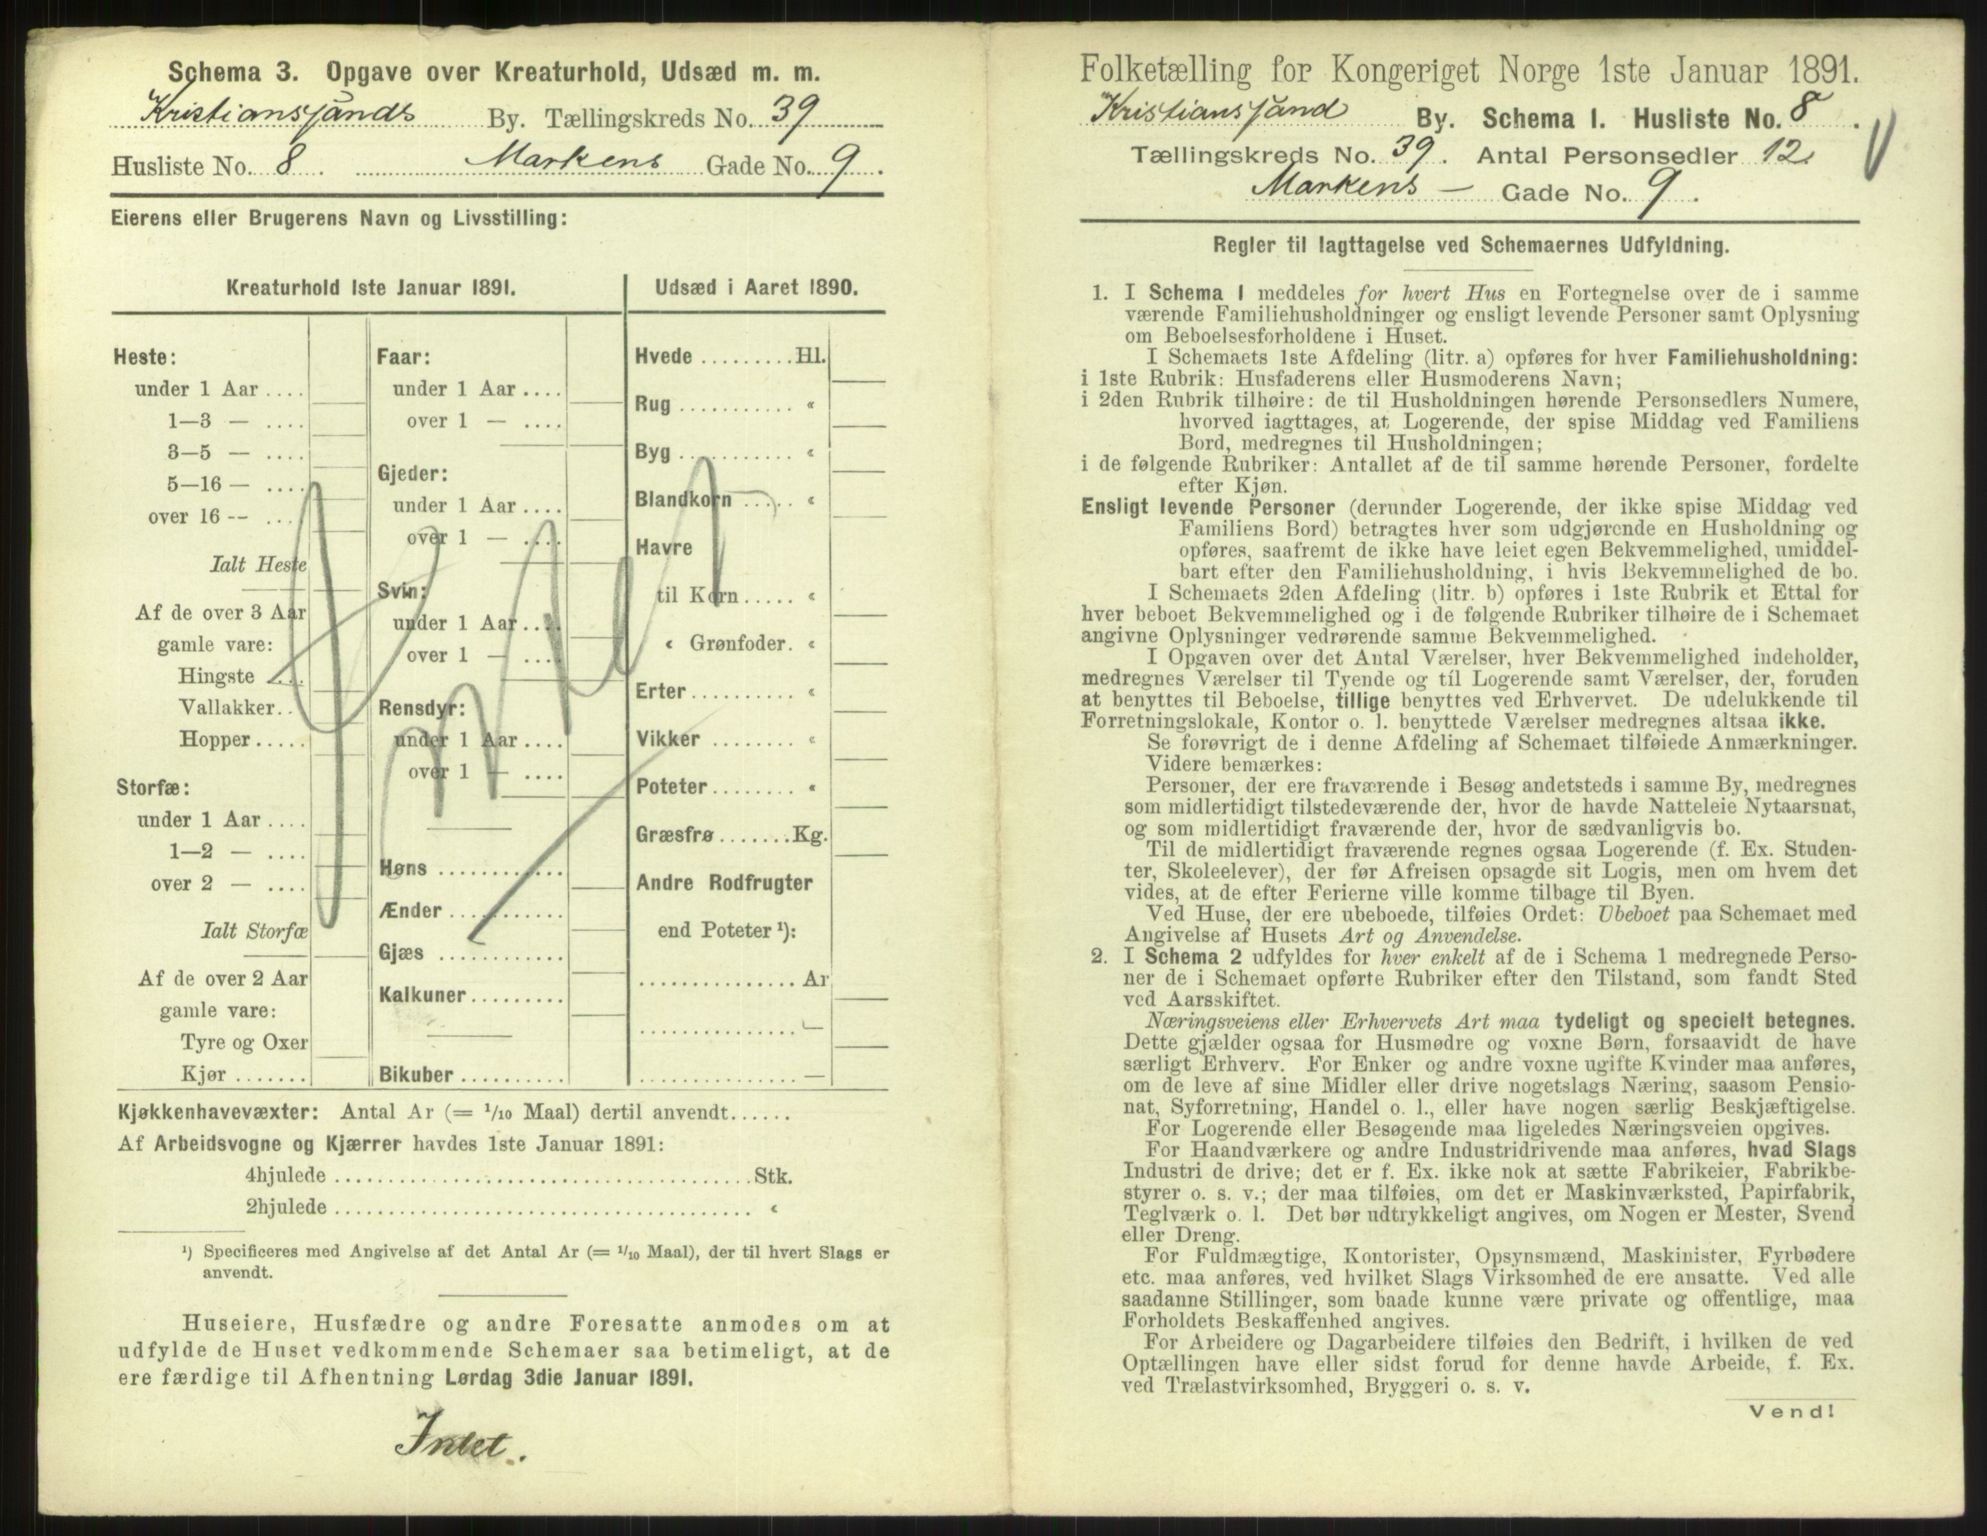 Schema 3. Opgave over Kreaturhold, Udsæd m. m.
Kristianssands By. Tællingskreds No. 39
Husliste No. 8 . Markens Gade No. 9 .
Eierens eller Brugerens Navn og Livsstilling:
Kreaturhold 1ste Januar 1891.
Heste:
under 1 Aar ....
1—3 — ....
3—5 — ....
5—16 — ....
over 16 -- ....
Ialt Heste
Af de over 3 Aar
gamle vare:
Hingste ....
Vallakker..
Hopper.....
Storfæ:
under 1 Aar ....
1—2 — ....
over 2 — ....
Ialt Storfæ
Af de over 2 Aar
gamle vare:
Tyre og Oxer
Kjør .......
Faar:
under 1 Aar ....
over 1 — ....
Gjeder:
under 1 Aar ....
over 1 — ....
Svin:
under 1 Aar ....
over 1 — ....
Rensdyr:
under 1 Aar ....
over 1 — ....
Høns ............
Ænder ...........
Gjæs ............
Kalkuner.........
Bikuber ..........
Udsæd i Aaret 1890.
Hvede .........Hl.
Rug ........... «
Byg ........... «
Blandkorn ..... «
Havre
til Korn ..... «
« Grønfoder. «
Erter .......... «
Vikker ......... «
Poteter ........ «
Græsfrø .......Kg.
Andre Rodfrugter
end Poteter ¹):
............... Ar
............... —
............... —
Kjøkkenhavevæxter: Antal Ar (= 1/10 Maal) dertil anvendt......
Af Arbeidsvogne og Kjærrer havdes 1ste Januar 1891:
4hjulede ........................................Stk.
2hjulede ........................................ «
¹) Specificeres med Angivelse af det Antal Ar (= 1/10 Maal), der til hvert Slags er
anvendt.
Huseiere, Husfædre og andre Foresatte anmodes om at
udfylde de Huset vedkommende Schemaer saa betimeligt, at de
ere færdige til Afhentning Lørdag 3die Januar 1891.
Intet.
Folketælling for Kongeriget Norge 1ste Januar 1891.
Kristianssand By. Schema I. Husliste No. 8 .
Tællingskreds No. 39. Antal Personsedler 12.
Markens — Gade No. 9 .
Regler til Iagttagelse ved Schemaernes Udfyldning.
1. I Schema I meddeles for hvert Hus en Fortegnelse over de i samme
værende Familiehusholdninger og ensligt levende Personer samt Oplysning
om Beboelsesforholdene i Huset.
I Schemaets 1ste Afdeling (litr. a) opføres for hver Familiehusholdning:
i 1ste Rubrik: Husfaderens eller Husmoderens Navn;
i 2den Rubrik tilhøire: de til Husholdningen hørende Personsedlers Numere,
hvorved iagttages, at Logerende, der spise Middag ved Familiens
Bord, medregnes til Husholdningen;
i de følgende Rubriker: Antallet af de til samme hørende Personer, fordelte
efter Kjøn.
Ensligt levende Personer (derunder Logerende, der ikke spise Middag ved
Familiens Bord) betragtes hver som udgjørende en Husholdning og
opføres, saafremt de ikke have leiet egen Bekvemmelighed, umiddel-
bart efter den Familiehusholdning, i hvis Bekvemmelighed de bo.
I Schemaets 2den Afdeling (litr. b) opføres i 1ste Rubrik et Ettal for
hver beboet Bekvemmelighed og i de følgende Rubriker tilhøire de i Schemaet
angivne Oplysninger vedrørende samme Bekvemmelighed.
I Opgaven over det Antal Værelser, hver Bekvemmelighed indeholder,
medregnes Værelser til Tyende og til Logerende samt Værelser, der, foruden
at benyttes til Beboelse, tillige benyttes ved Erhvervet. De udelukkende til
Forretningslokale, Kontor o. l. benyttede Værelser medregnes altsaa ikke.
Se forøvrigt de i denne Afdeling af Schemaet tilføiede Anmærkninger.
Videre bemærkes:
Personer, der ere fraværende i Besøg andetsteds i samme By, medregnes
som midlertidigt tilstedeværende der, hvor de havde Natteleie Nytaarsnat,
og som midlertidigt fraværende der, hvor de sædvanligvis bo.
Til de midlertidigt fraværende regnes ogsaa Logerende (f. Ex. Studen-
ter, Skoleelever), der før Afreisen opsagde sit Logis, men om hvem det
vides, at de efter Ferierne ville komme tilbage til Byen.
Ved Huse, der ere ubeboede, tilføies Ordet: Ubeboet paa Schemaet med
Angivelse af Husets Art og Anvendelse.
2. I Schema 2 udfyldes for hver enkelt af de i Schema 1 medregnede Perso-
ner de i Schemaet opførte Rubriker efter den Tilstand, som fandt Sted
ved Aarsskiftet.
Næringsveiens eller Erhvervets Art maa tydeligt og specielt betegnes.
Dette gjælder ogsaa for Husmødre og voxne Børn, forsaavidt de have
særligt Erhverv. For Enker og andre voxne ugifte Kvinder maa anføres,
om de leve af sine Midler eller drive nogetslags Næring, saasom Pensio-
nat, Syforretning, Handel o. l., eller have nogen særlig Beskjæftigelse.
For Logerende eller Besøgende maa ligeledes Næringsveien opgives.
For Haandværkere og andre Industridrivende maa anføres, hvad Slags
Industri de drive; det er f. Ex. ikke nok at sætte Fabrikeier, Fabrikbe-
styrer o. s. v.; der maa tilføies, om det er Maskinværksted, Papirfabrik,
Teglværk o. l. Det bør udtrykkeligt angives, om Nogen er Mester, Svend
eller Dreng.
For Fuldmægtige, Kontorister, Opsynsmænd, Maskinister, Fyrbødere
etc. maa anføres, ved hvilket Slags Virksomhed de ere ansatte. Ved alle
saadanne Stillinger, som baade kunne være private og offentlige, maa
Forholdets Beskaffenhed angives.
For Arbeidere og Dagarbeidere tilføies den Bedrift, i hvilken de ved
Optællingen have eller sidst forud for denne havde Arbeide, f. Ex.
ved Trælastvirksomhed, Bryggeri o. s. v.
Vend!